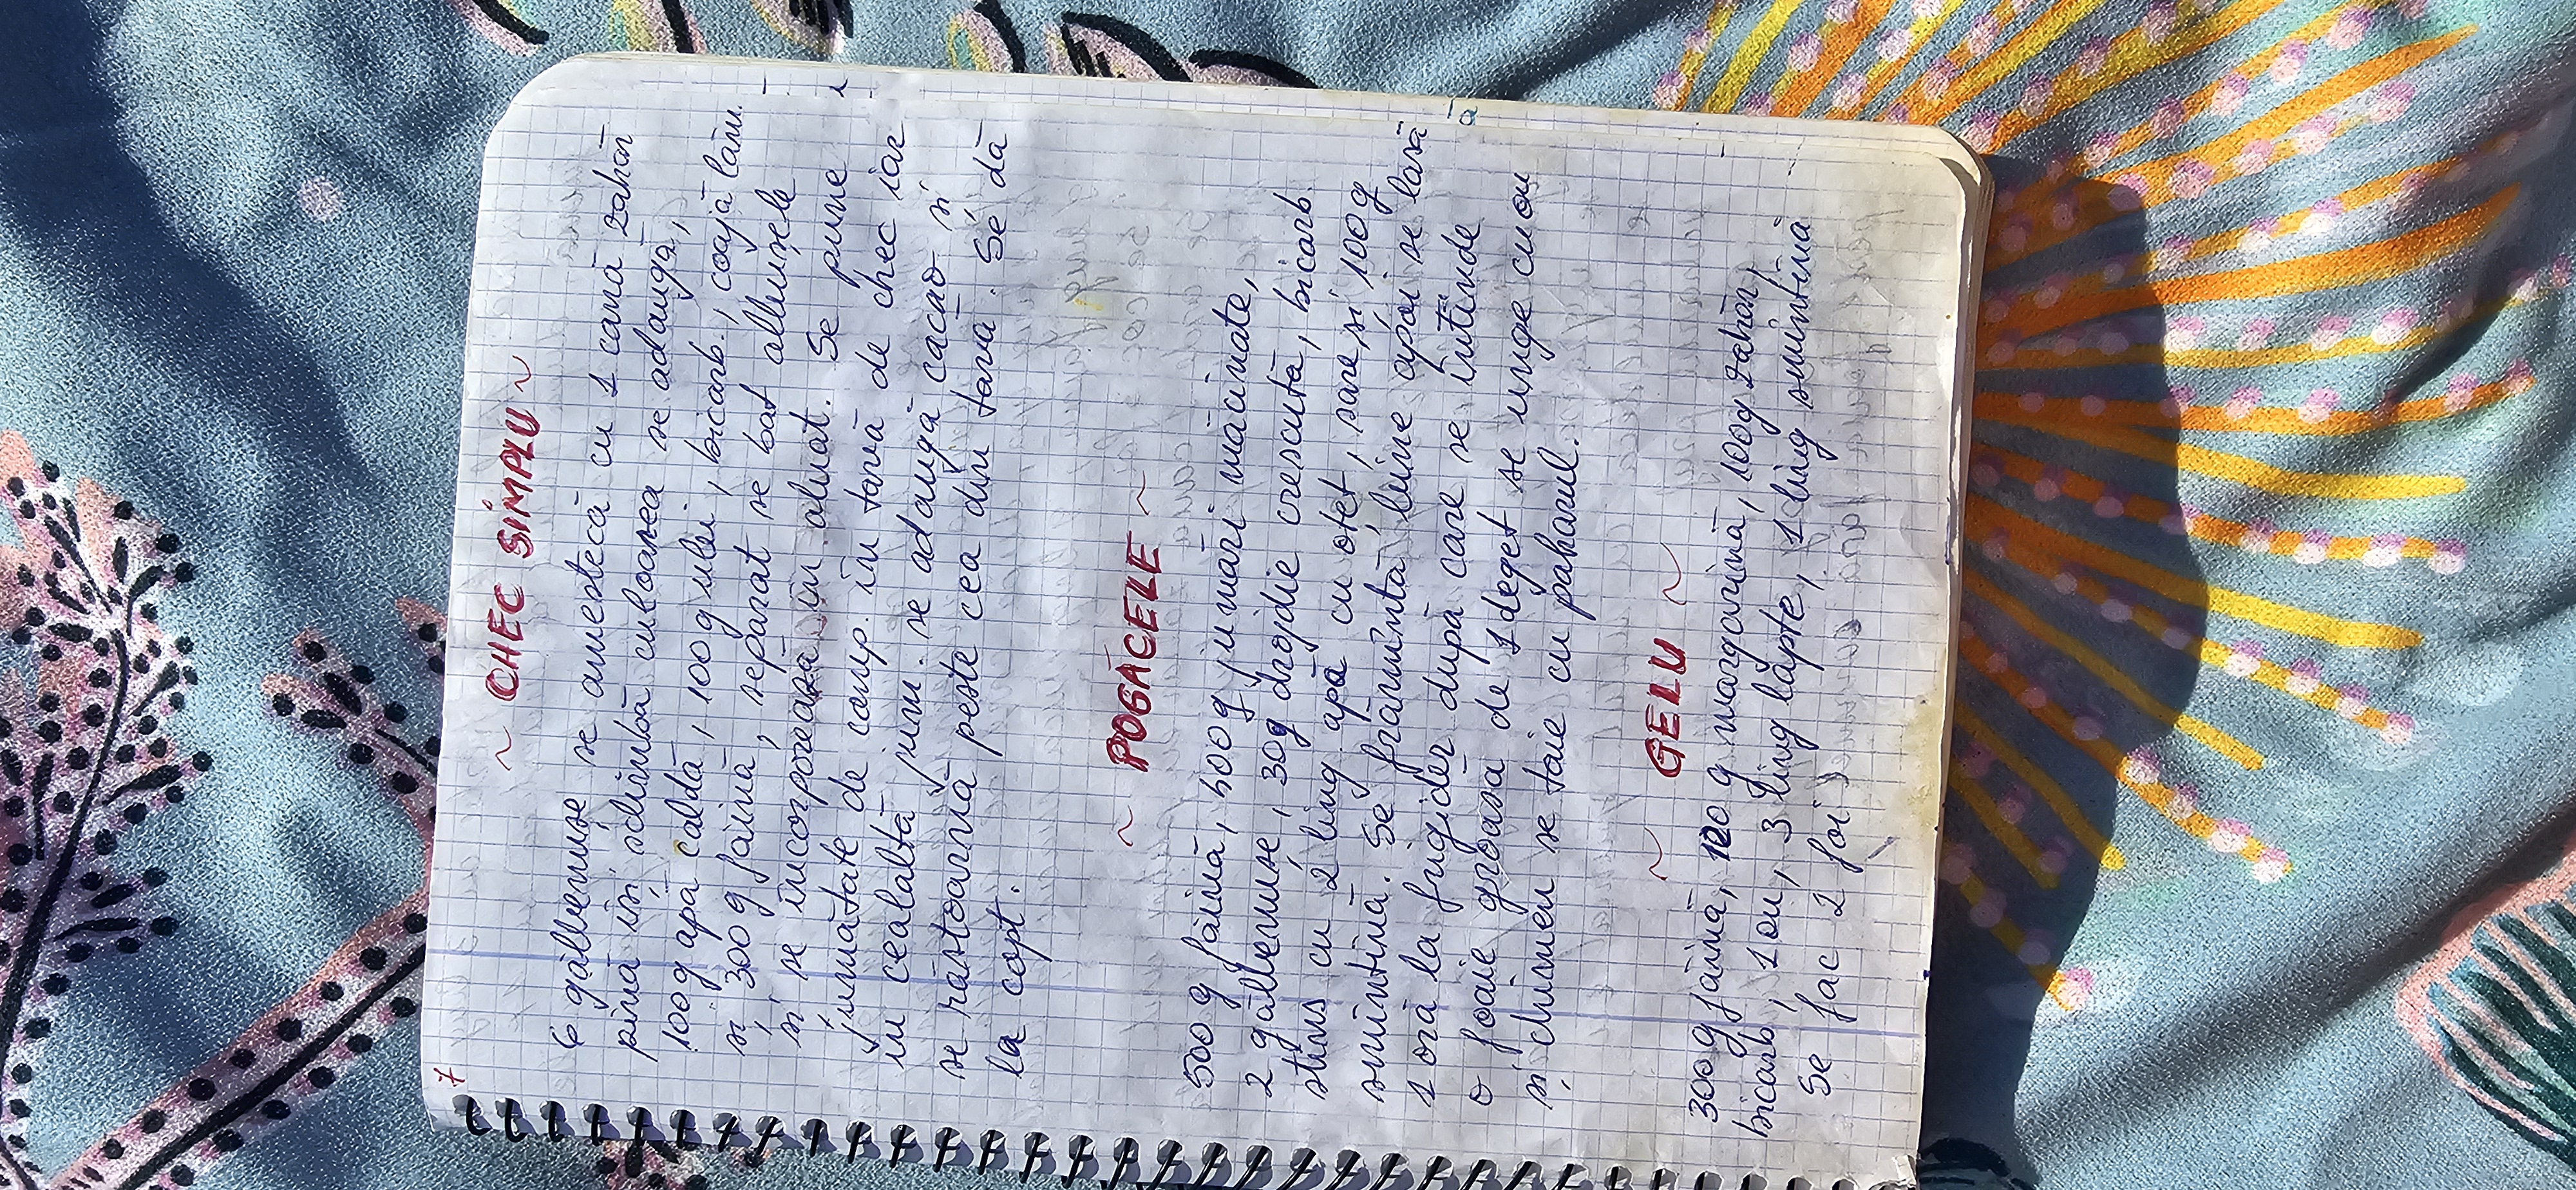 7
~ CHEC SIMPLU ~
6 gălbenușe se amestecă cu 1 cană zahăr
pînă își schimbă culoarea se adaugă,
100 g apă caldă, 100 g ulei, bicarb., coajă lăm.
și 300 g făină, separat se bat albușele
și se încorporează în aluat. Se pune
jumătate de comp. în tavă de chec iar
în cealaltă jum. se adaugă cacao și
se răstoarnă peste cea din tavă. Se dă
la copt.
~ POGĂCELE ~
500 g făină, 400 g jumări măcinate,
2 gălbenușe, 30g drojdie crescută, bicarb.
stins cu 2 ling. apă cu oțet, sare și 100 g
smîntînă. Se frămîntă bine apoi se lasă
1 oră la frigider după care se întinde
o foaie groasă de 1 deget se unge cu ou
și chimen se taie cu paharul.
~ GELU ~
300 g făină, 120 g margarină, 100g zahăr,
bicarb, 1 ou, 3 ling lapte, 1 ling smîntînă
Se fac 2 foi